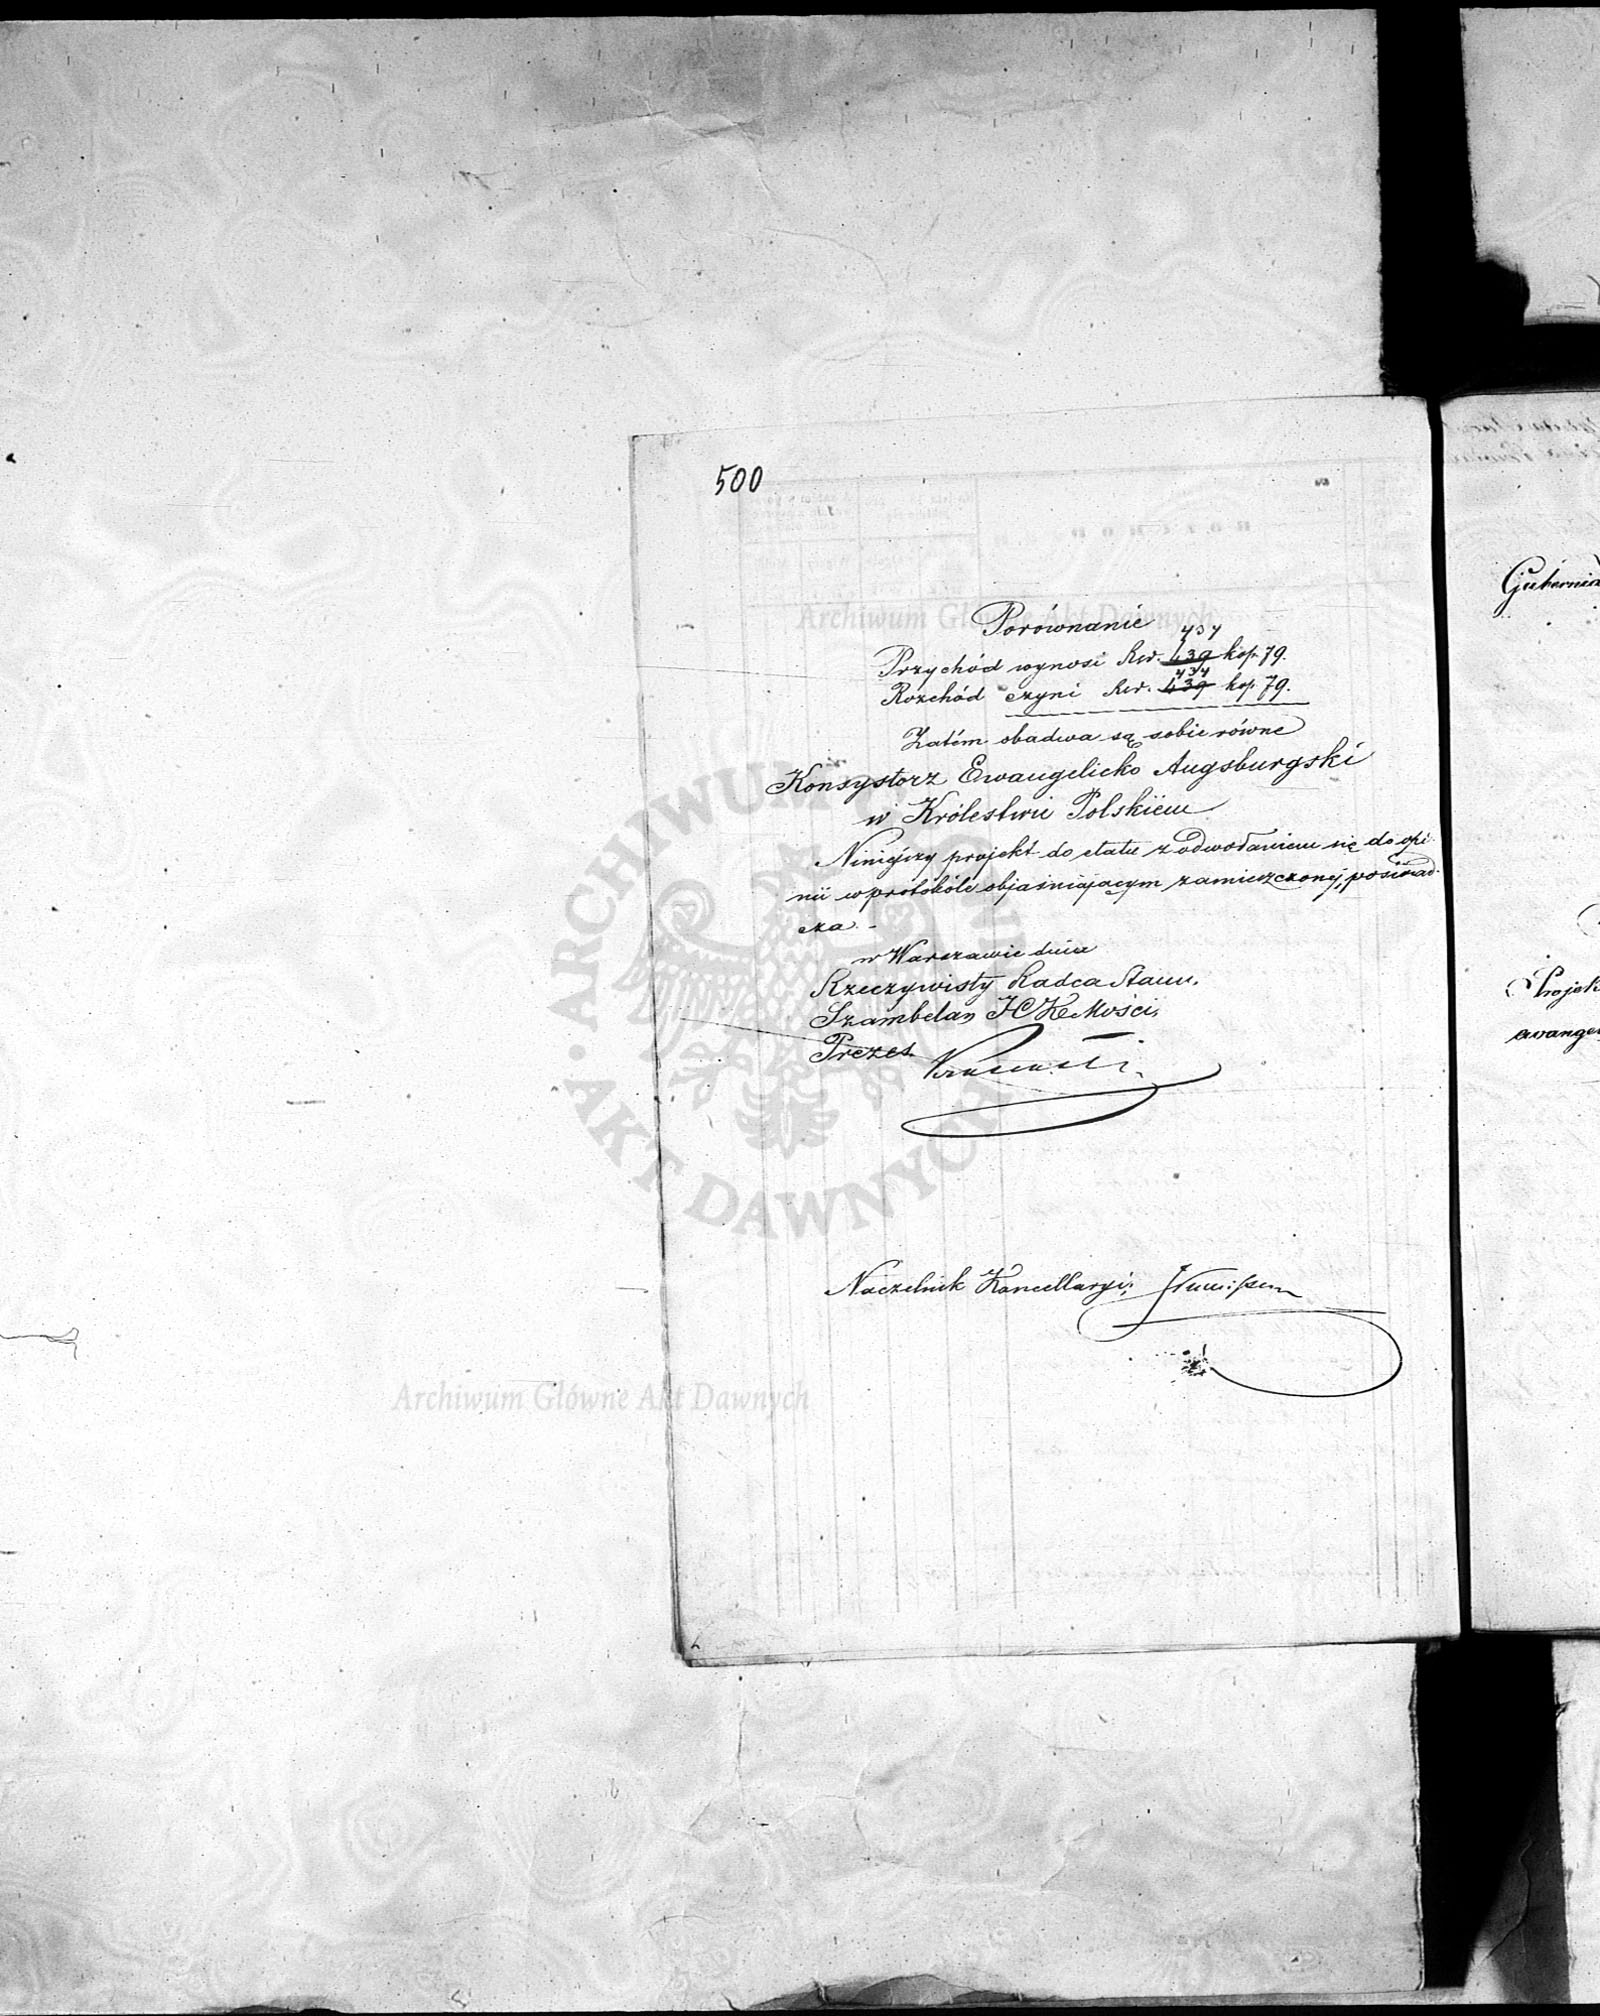 500
Porównanie
434
Przychód wynosi Rsr. 439 kop. 79.
434
Rozchód czyni Rsr. 439 kop. 79.
Zatém obadwa są sobie równe
Konsystorz Ewangelicko Augsburgski
w Królestwie Polskiem
Niniejszy projekt do etatu z odwołaniem się do opi-
nii w protokóle objaśniającym zamieszczonej, poświad-
cza. -
w Warszawie dnia
Rzeczywisty Radca Stanu,
Szambelan JCKMości,
Prezes
Naczelnik Kancellaryi,
Gubernia
Projek
ewange
Archiwum Główne Akt Dawnych
ARCHIWUM GŁÓWNE AKT DAWNYCH
Archiwum Główne Akt Dawnych